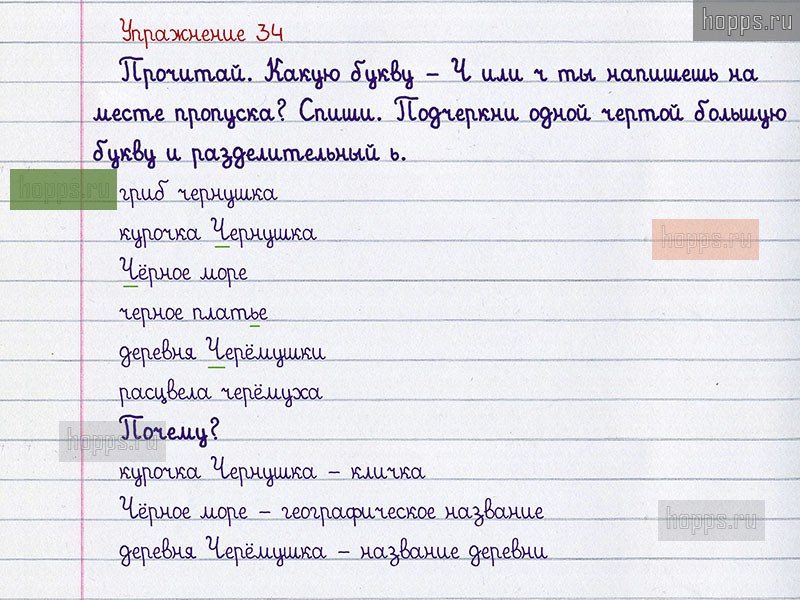 hopps.ru
Упражнение 34
Прочитай. Какую букву – Ч или ч ты напишешь на
месте пропуска? Спиши. Подчеркни одной чертой большую
букву и разделительный ь.
hopps.ru
гриб чернушка
курочка Чернушка
hopps.ru
Чёрное море
черное платье
деревня Черёмушки
расцвела черёмуха
Почему?
hopps.ru
курочка Чернушка – кличка
Чёрное море – географическое название
hopps.ru
деревня Черёмушка – название деревни